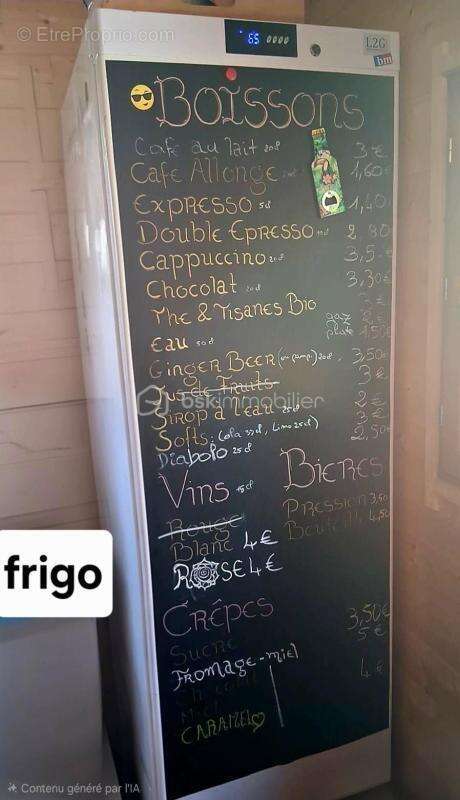 © EtreProprio.com
65
L2G
bm
BOISSONS
Café au lait 20cl 3€
Café Allongé 1,60€
Expresso 5cl 1,40
Double Epresso 2,80
Cappuccino 20cl 3,5
Chocolat 20cl 3,30€
The & Tisanes Bio 3€
gaz 2€
Eau 50cl plate 1,50€
Ginger Beer 20cl 3,50€
Jus de Fruits 3€
bskimmobilier
Sirop à l'eau 25cl 2€
Softs: Cola 33cl, Limo 25cl) 3€
Diabolo 25cl 2,50€
Vins 15cl
Bieres
Pression 3,50
Bouteille 4,50
Rouge
Blanc 4€
ROSE 4€
frigo
CRÊPES
Sucre 3,50€
5€
Fromage-miel
4€
Miel
CARAMEL
Contenu généré par l'IA